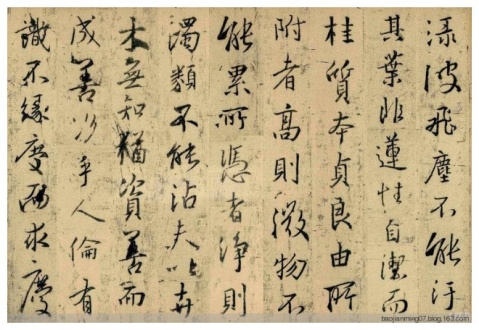 淥波飛塵不能汙
其葉非蓮性自潔而
桂質本貞良由所
附者高則微物不
能累所憑者淨則
濁類不能沾夫以卉
木無知猶資善而
成善況乎人倫有
識不緣慶而求慶
baojianming07.blog.163.com